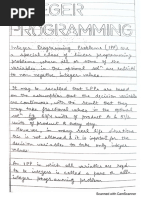 INTEGER
PROGRAMMING
Integer Programming Problems (IPP) are
a special class of Linear programming
problems where all or some of the
variables in the optimal solution are restricted
to non negative integer values.
It may be recalled that LPP are used
the assumption that the
are continuous, with the result that
may take fractional values in the optimal
units of product A & 6 1/2
units of product A every day.
However, in many real life situations
this is not allowed & it is required for the
decision variables to take only integer
values.
An LPP in which all variables are reqd.
to be integers is called a pure or all
integer programming problem.
Scanned with CamScanner